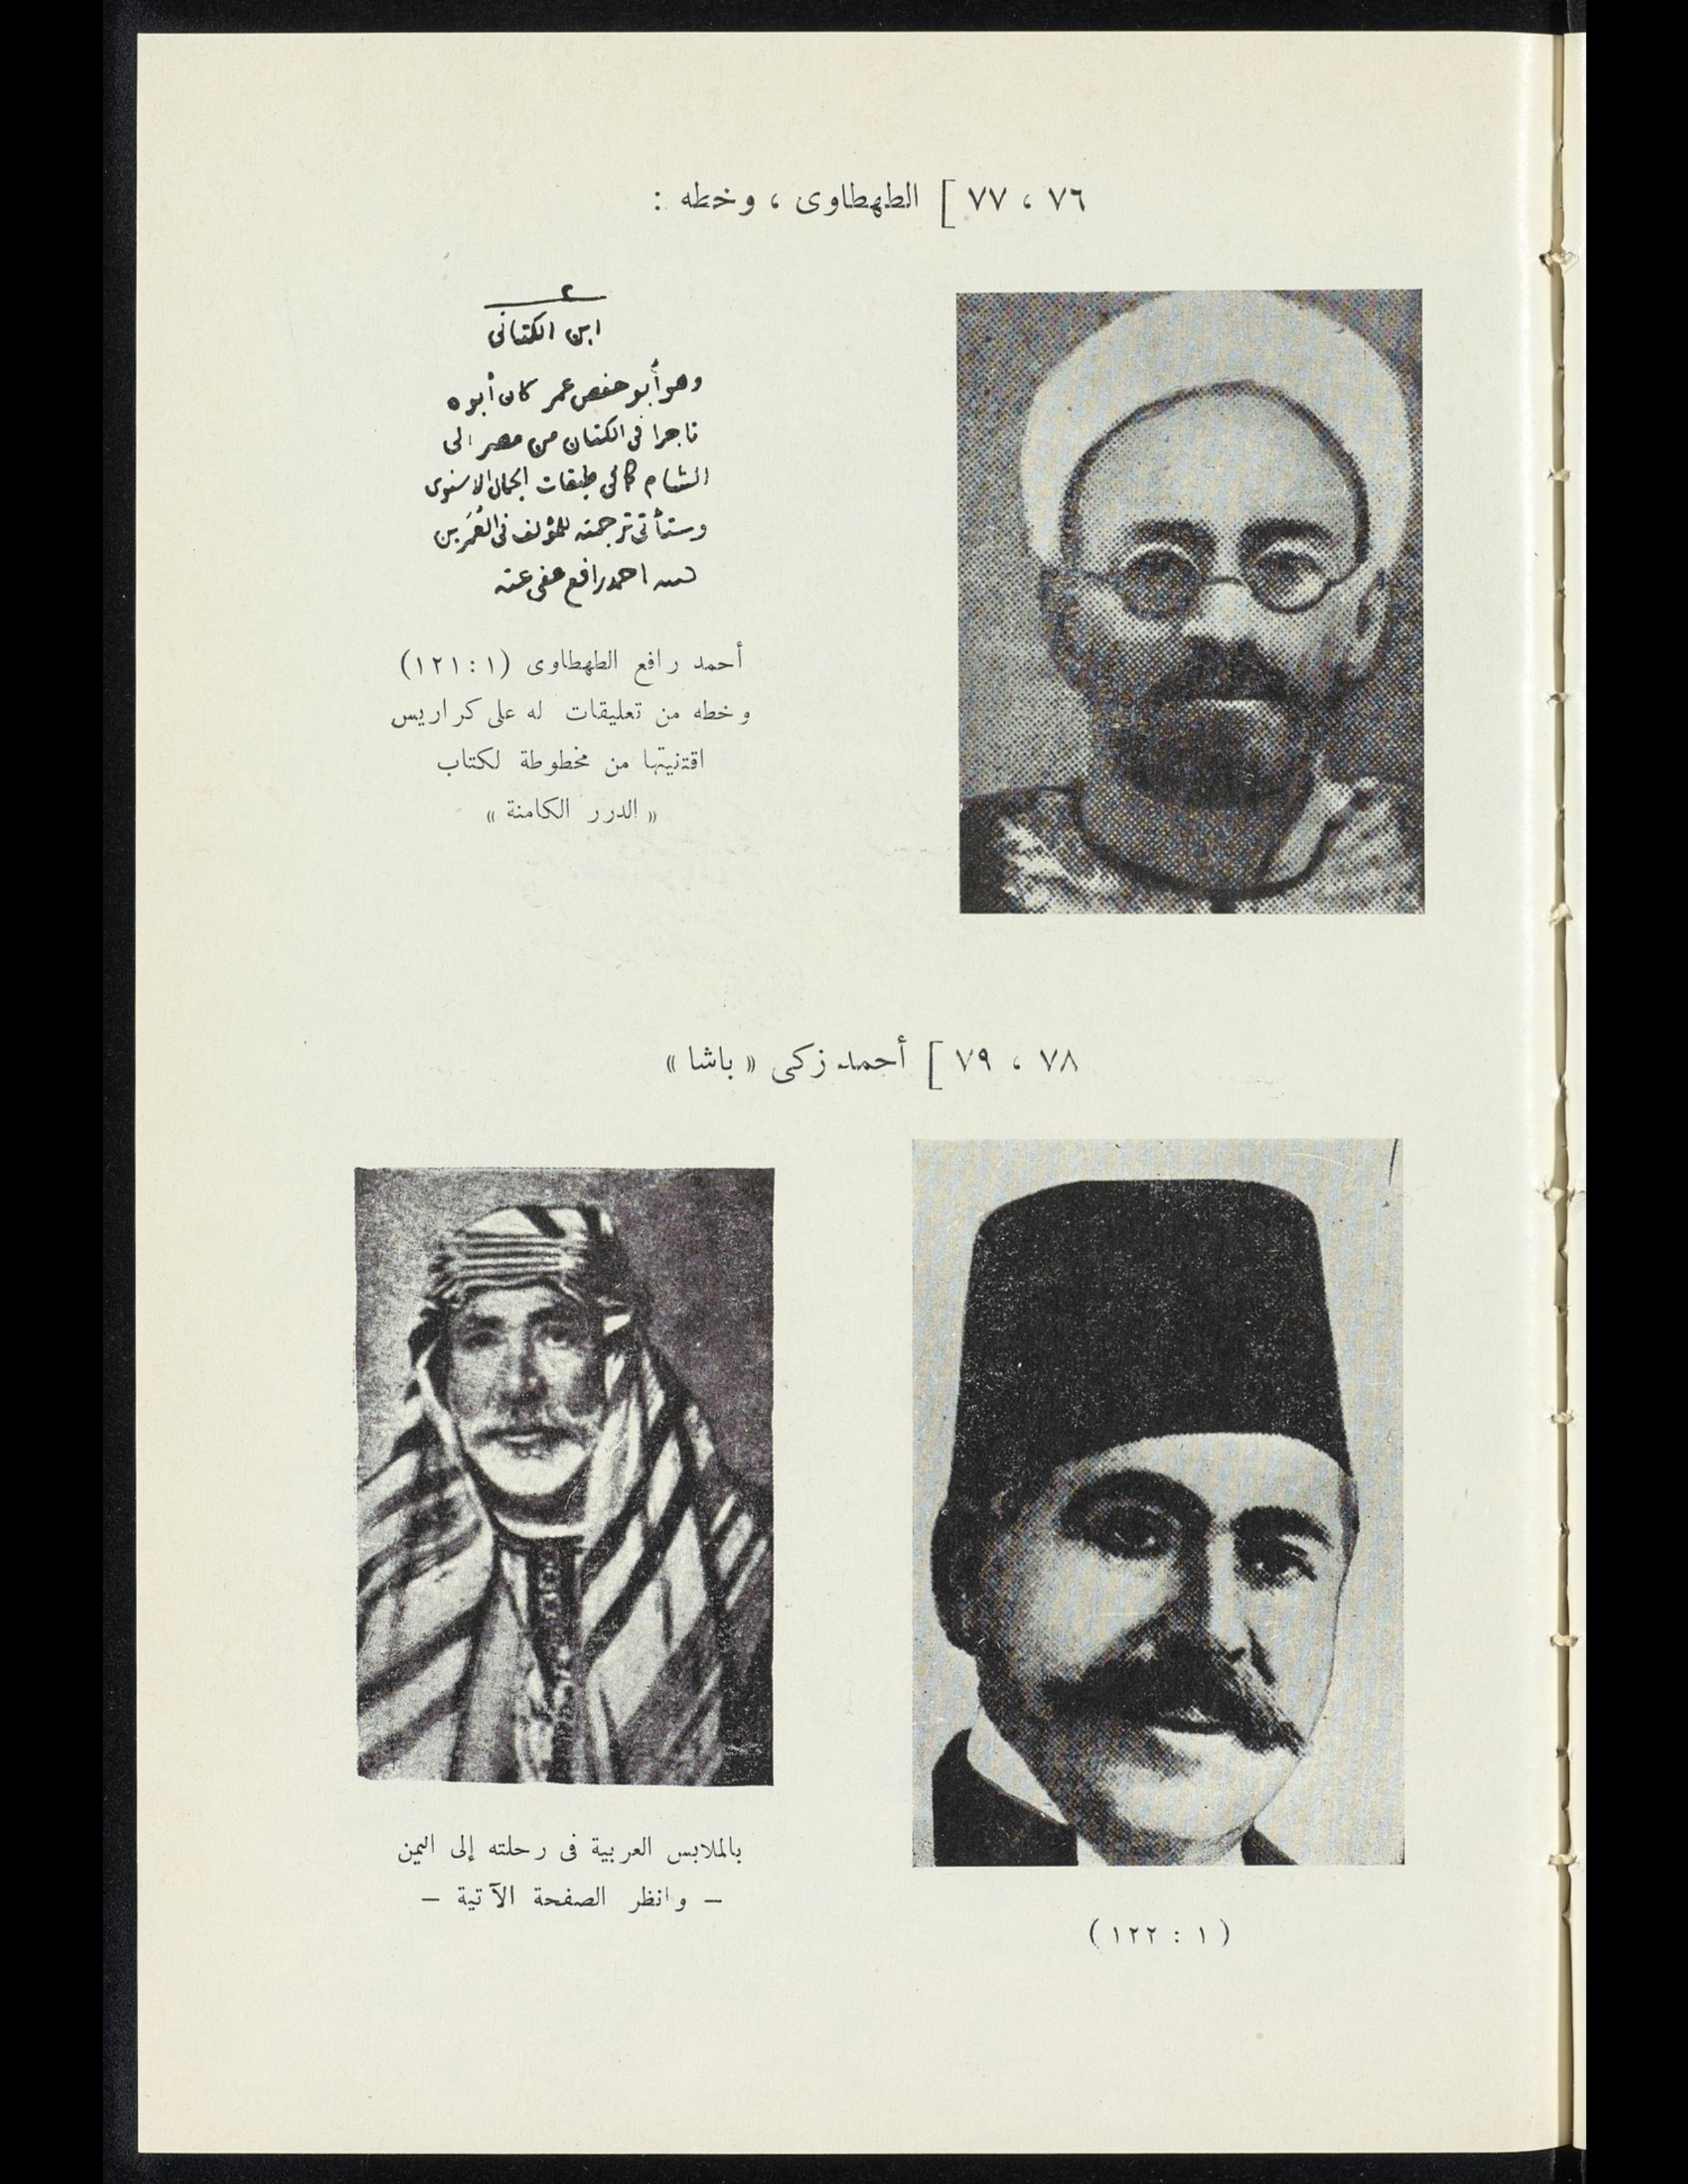 ٧٦ ، ٧٧ ] الطهطاوى ، وخطه :
ابن الكتانى
وهو أبو حفص عمر كان أبوه
تاجرا فى الكتان من مصر الى
الشام كما فى طبقات الجمال الاسنوى
وستأتى ترجمته للمؤلف فى العُمَرين
احمد رافع عفى عنه
أحمد رافع الطهطاوى (١ : ١٢١)
وخطه من تعليقات له على كراريس
اقتنيتها من مخطوطة لكتاب
« الدرر الكامنة »
٧٨ ، ٧٩ ] أحمد زكى « باشا »
بالملابس العربية فى رحلته إلى اليمن
– وانظر الصفحة الآتية –
( ١ : ١٢٢ )